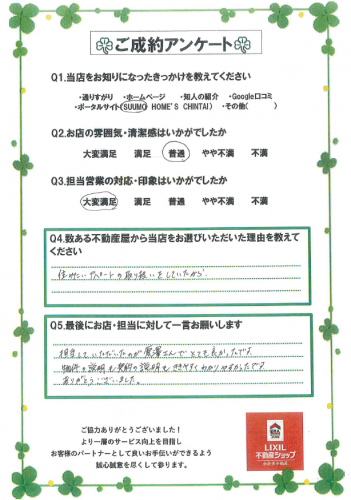 ご成約アンケート
Q1.当店をお知りになったきっかけを教えてください
・通りすがり ・ホームページ ・知人の紹介 ・Google口コミ
・ポータルサイト(SUUMO HOME'S CHINTAI) ・その他( )
Q2.お店の雰囲気・清潔感はいかがでしたか
大変満足 満足 普通 やや不満 不満
Q3.担当営業の対応・印象はいかがでしたか
大変満足 満足 普通 やや不満 不満
Q4.数ある不動産屋から当店をお選びいただいた理由を教えて
ください
住みたいアパートの取り扱いをしていたから
Q5.最後にお店・担当に対して一言お願いします
担当していただいたのが さんでとても良かったです。
物件の説明も契約の説明もききやすくわかりやすかったです
ありがとうございました。
ご協力ありがとうございました！
より一層のサービス向上を目指し
お客様のパートナーとして良いお手伝いができるよう
誠心誠意を尽くして参ります。
LIXIL
不動産ショップ